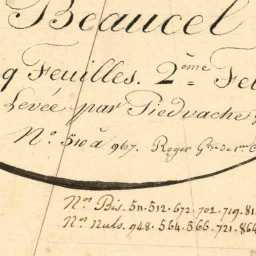 Beaucel
9 Feuilles. 2ème Feu
Levée par Piedvache
No. 510 à 967. Roger
Nos. Bis. 511. 512. 672. 702. 719. 81
Nos. nuls. 948. 564. 566. 721. 864